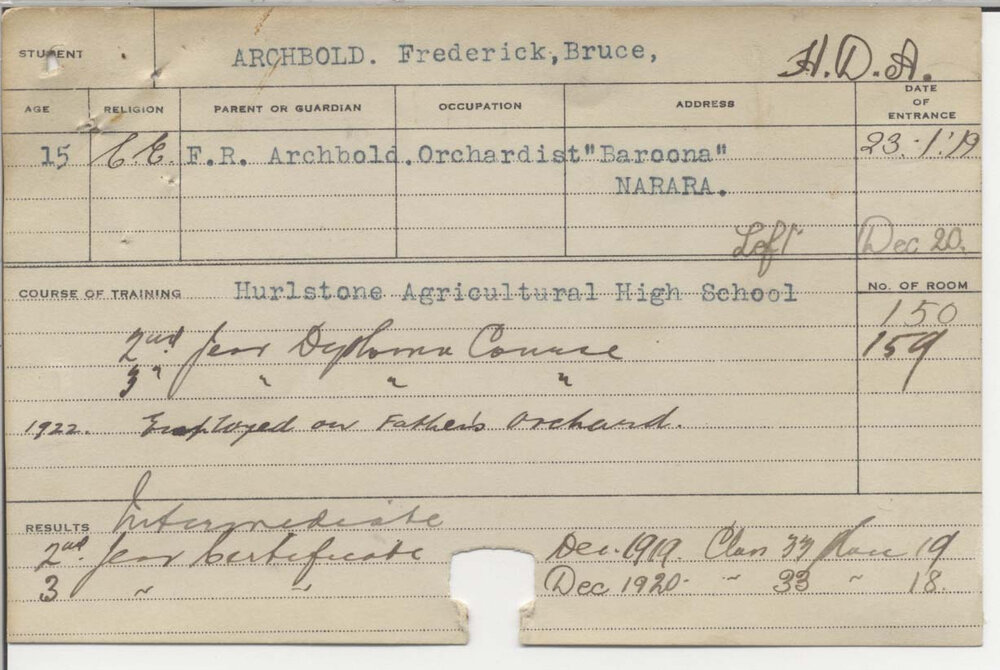 STUDENT ARCHBOLD. Frederick, Bruce, H.D.A.
AGE RELIGION PARENT OR GUARDIAN OCCUPATION ADDRESS DATE OF ENTRANCE
15 C.E. F.R. Archbold. Orchardist "Baroona" 23.1.'19
NARARA.
Left Dec 20.
COURSE OF TRAINING Hurlstone Agricultural High School No. OF ROOM
150
2nd Year Diploma Course 159
3 " " " "
1922. Employed on Father's Orchard.
RESULTS Intermediate
2nd Year Certificate Dec. 1919. Class 33 Place 19
3 " " Dec 1920. " 33 " 18.